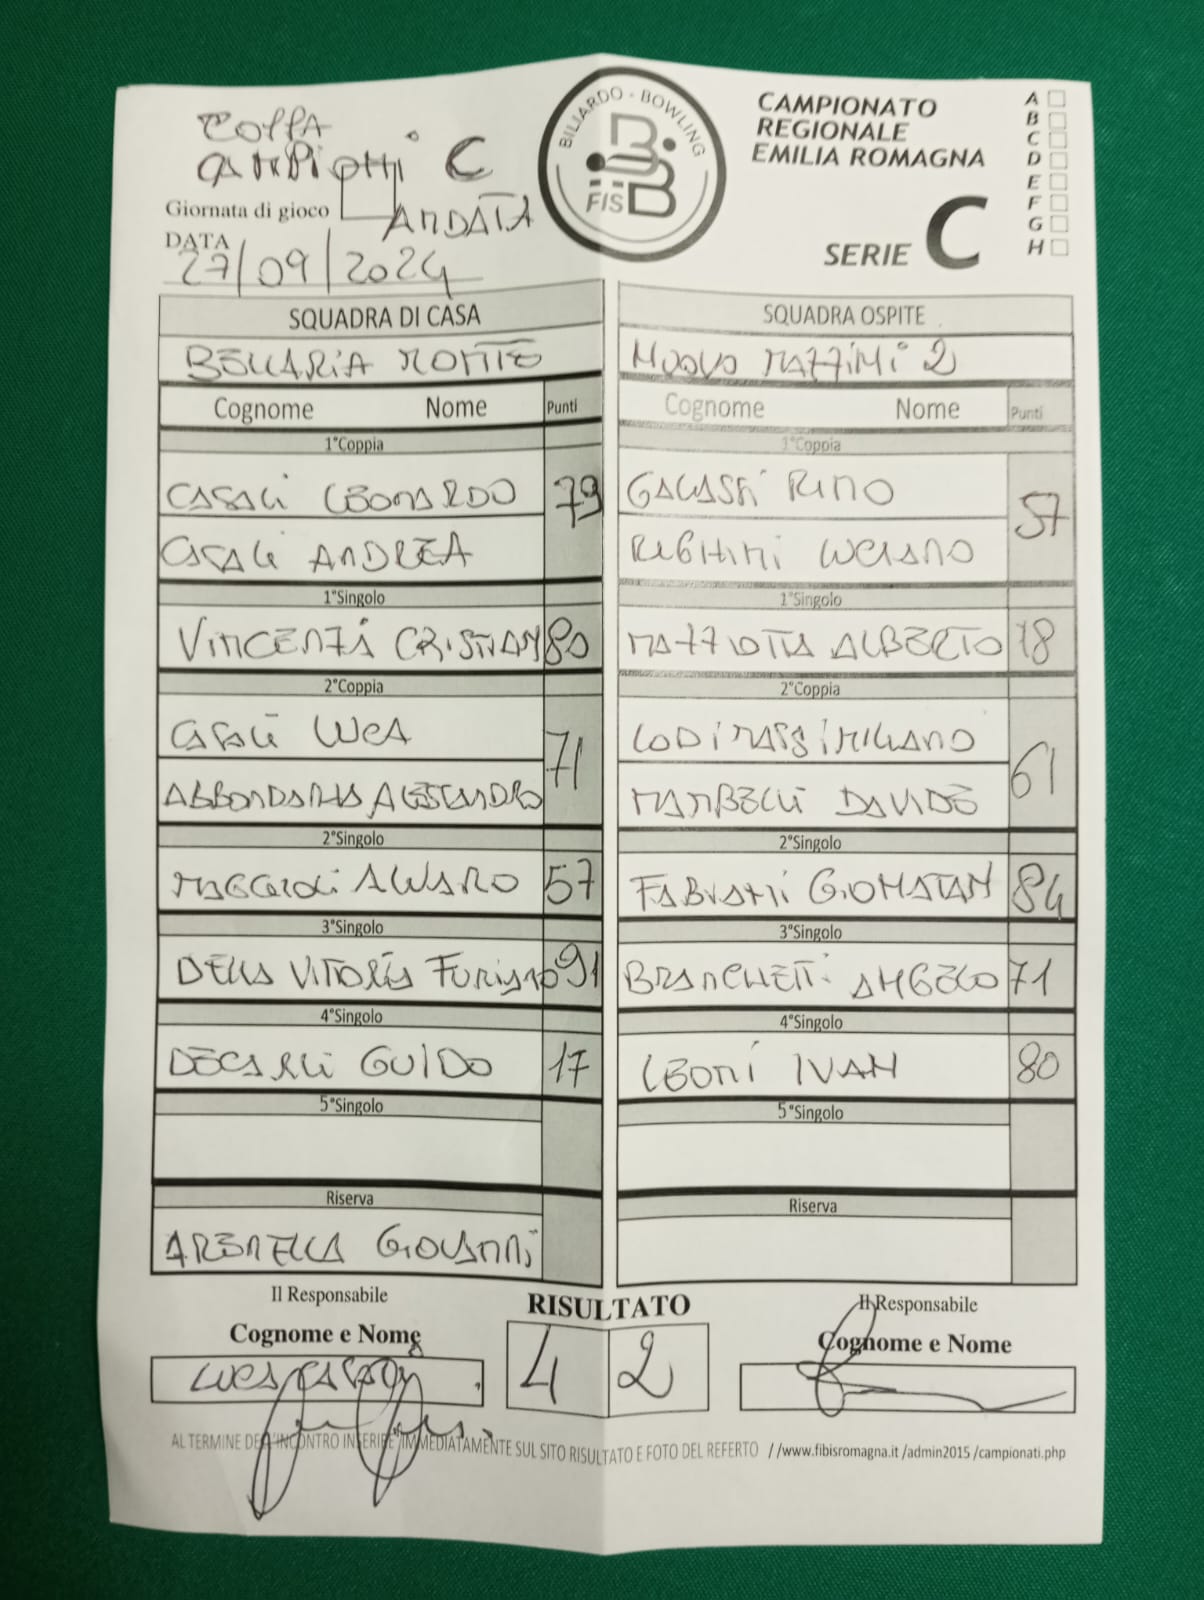 COPPA
CAMPIONI C
Giornata di gioco
ANDATA
DATA
27/09/2024
BILIARDO - BOWLING
FISBB
CAMPIONATO
REGIONALE
EMILIA ROMAGNA
SERIE C
A
B
C
D
E
F
G
H
SQUADRA DI CASA
BELLARIA MONTE
Cognome Nome Punti
1°Coppia
CASALI LEONARDO 79
CASALI ANDREA
1°Singolo
VINCENZI CRISTIAN 80
2°Coppia
CASALI LUCA 71
ABBONDANZA ALESSANDRO
2°Singolo
MAGGIOLI ALVARO 57
3°Singolo
DELLA VITTORIA FURIANO 91
4°Singolo
DECARLI GUIDO 17
5°Singolo
Riserva
ARENELLA GIOVANNI
SQUADRA OSPITE
NUOVO MAZZINI 2
Cognome Nome Punti
1°Coppia
GALASSI RINO 57
REGHINI LUCIANO
1°Singolo
MAZZOTTA ALBERTO 18
2°Coppia
LODI MASSIMILIANO 61
MAMBELLI DAVIDE
2°Singolo
FABIANI GIONATAN 84
3°Singolo
BRANCHETTI ANGELO 71
4°Singolo
LEONI IVAN 80
5°Singolo
Riserva
Il Responsabile
Cognome e Nome
LUCA CASALI
RISULTATO
4 2
Il Responsabile
Cognome e Nome
AL TERMINE DELL'INCONTRO INSERIRE IMMEDIATAMENTE SUL SITO RISULTATO E FOTO DEL REFERTO //www.fibisromagna.it /admin2015 /campionati.php